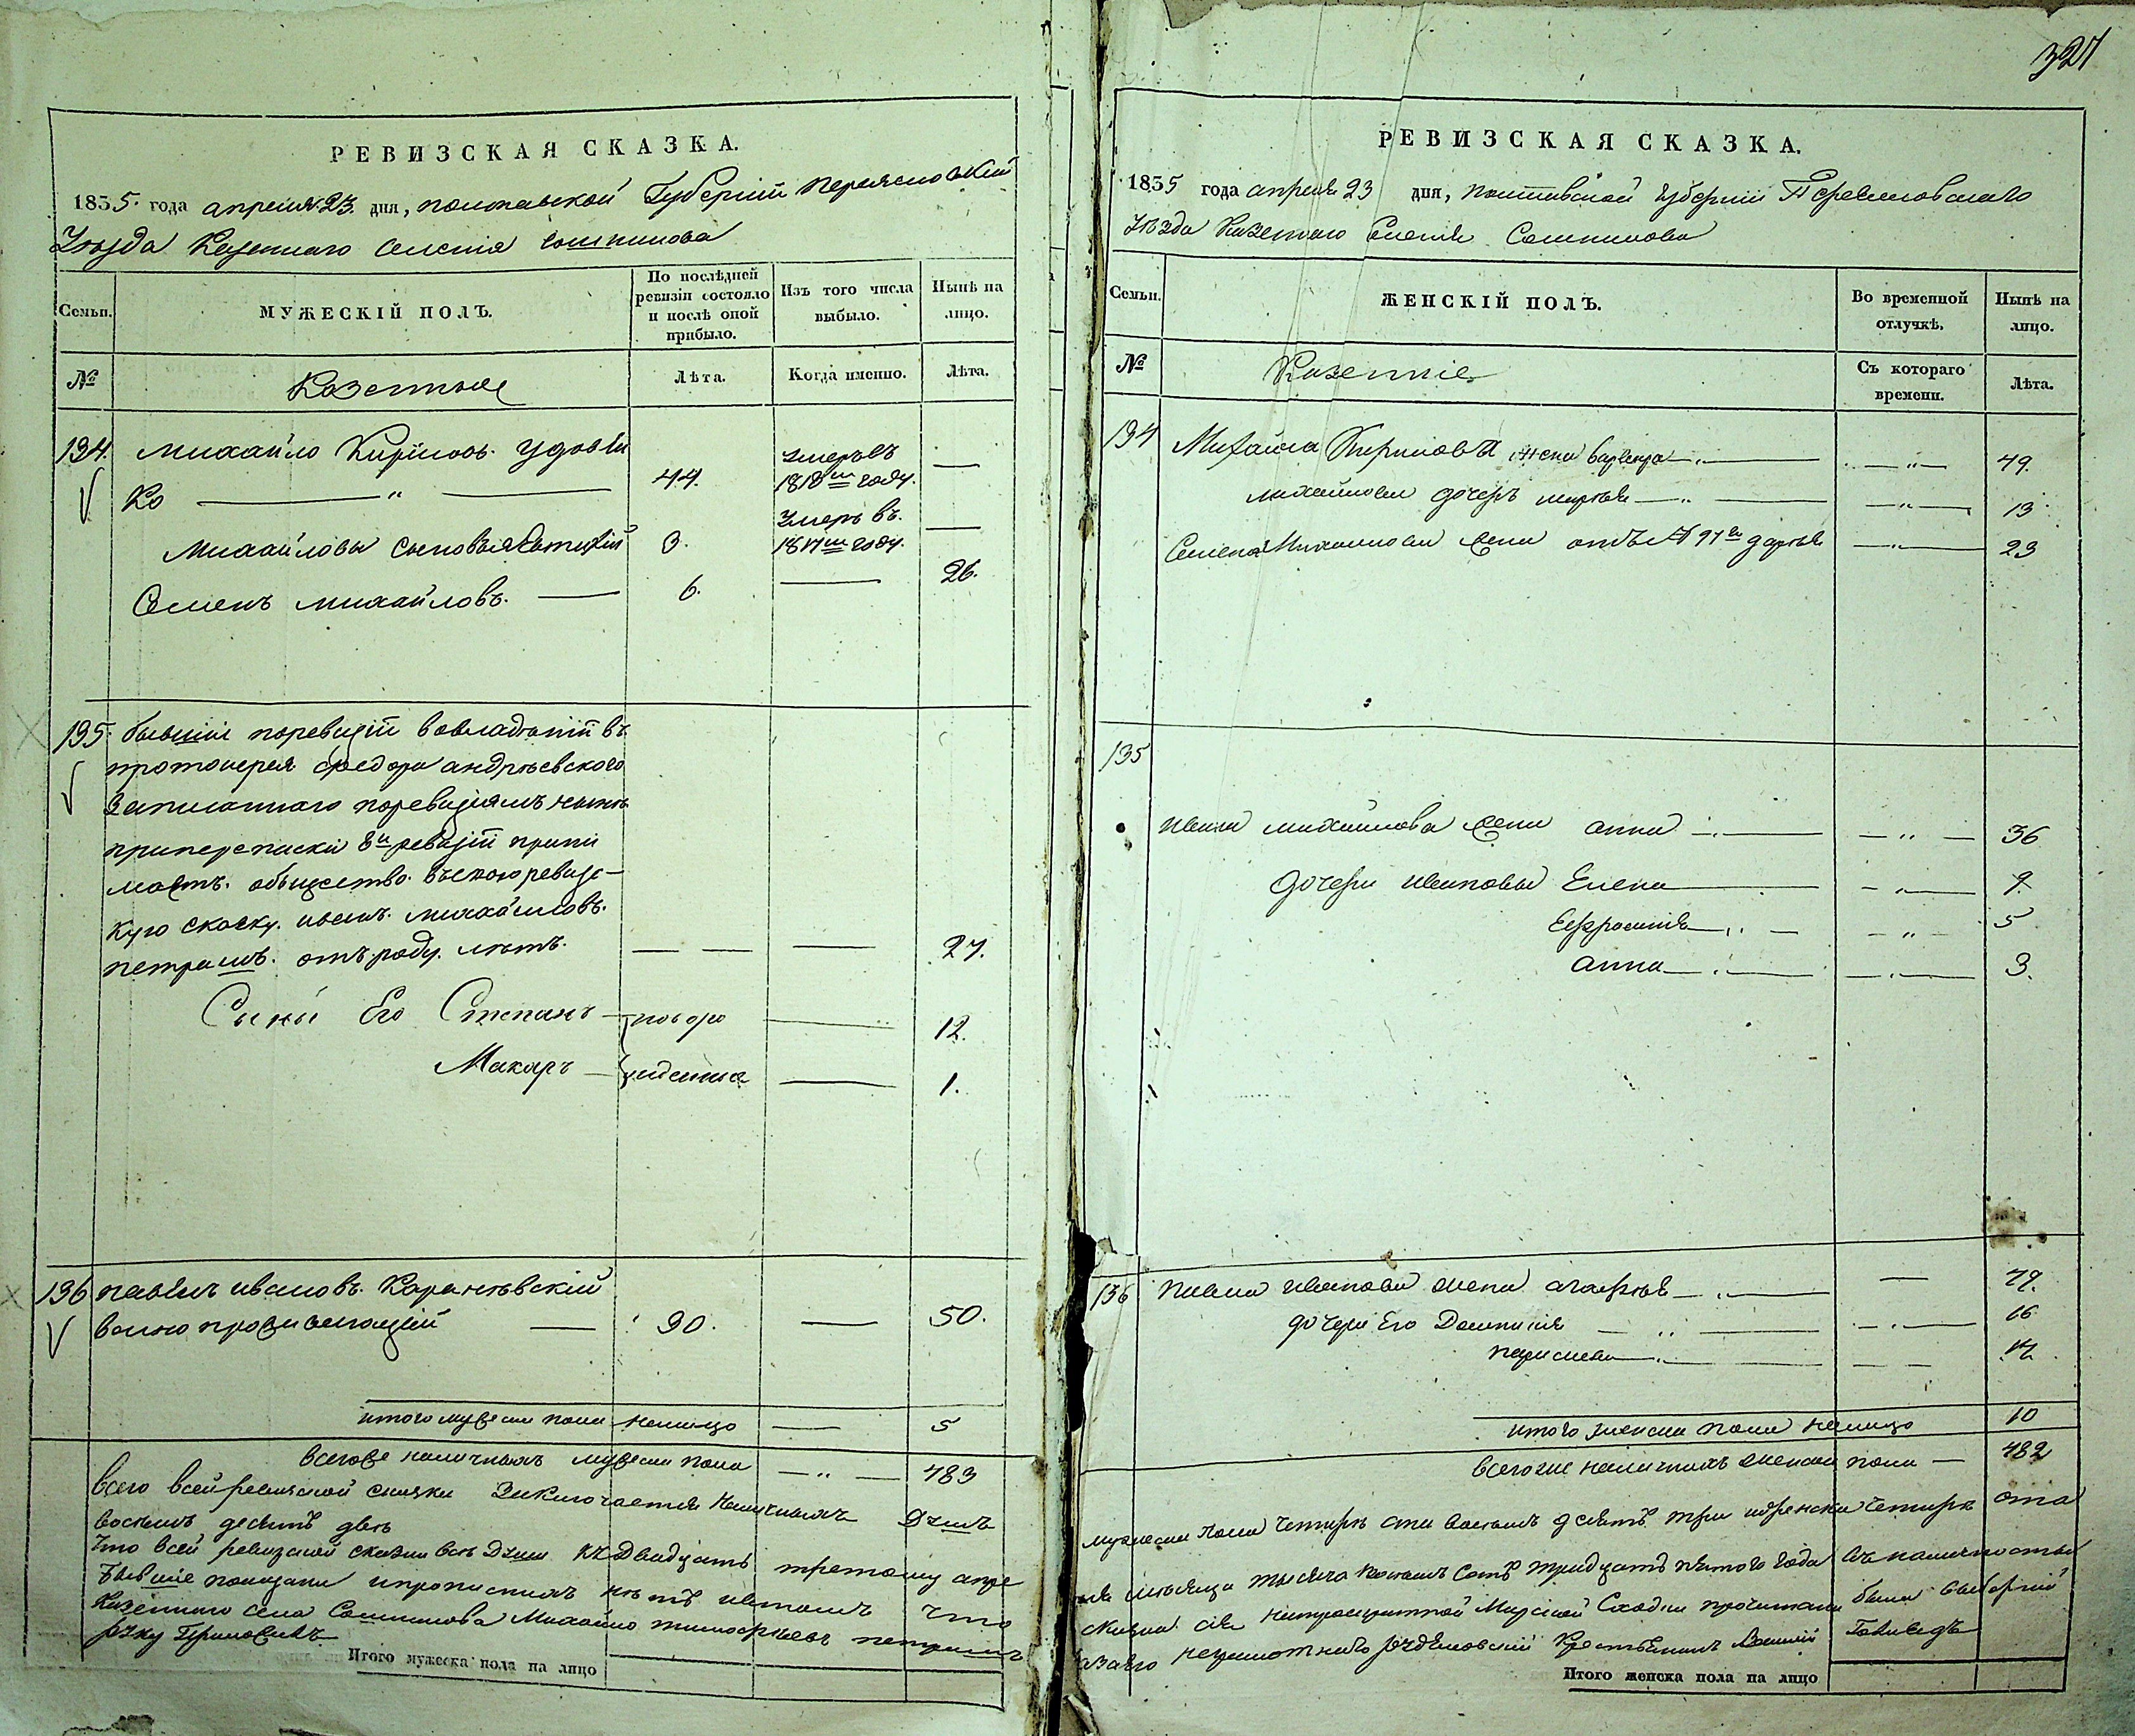 327
РЕВИЗСКАЯ СКАЗКА.
1835. года апреля 23. дня, полтавской Губернии переясловский
Уезда Казенного селения Сошникова
Семьи.
МУЖЕСКІЙ ПОЛЪ.
По послѣдней ревизіи состояло и послѣ оной прибыло.
Изъ того числа выбыло.
Нынѣ на лицо.
№
Казенные
Лѣта.
Когда именно.
Лѣта.
134. михайло Кириловъ Удовы
Ко — " — 44. умеръ въ 1818м году. —
Михайловы сыновья 3. Умеръ въ 1817м году. —
Семенъ михайловъ. — 6. — 26.
135. бывший поревизий вовладении въ
протоиерея федора андреевского
Записанного поревизиямъ ныне
приперепискѣ 8й ревизий прини
маетъ. общество. ревизс-
кую скаску. иванъ. михайловъ.
петрашъ. отъ роду. летъ. — — — 27.
Сыны Его Степанъ — — 12.
Макаръ — — 1.
136 павелъ ивановъ.
— 30. — 50.
итого мужеска пола налицо — 5
всегоже наличныхъ мужеска пола — " — 483
всего всей ревизской сказки Заключается Наличныхъ Душъ
восемъ десятъ две
Что всей ревизской скаски все Души КЪ Двадцать третому апре
Бывшие показаны ипрописныхъ нетъ что
Казенного села Сошникова Михайло тимофеевъ петрашъ
руку
Итого мужеска пола на лицо
РЕВИЗСКАЯ СКАЗКА.
1835 года апреля 23 дня, полтавской губернии Переясловского
Уезда Казенного Селения Сошникова
Семьи.
ЖЕНСКІЙ ПОЛЪ.
Во временной отлучкѣ.
Нынѣ на лицо.
№
Казенние
Съ котораго времени.
Лѣта.
134 Михайла Кирилова жена варвара — — " — 49.
михайлова дочеръ марья — " — — " — 13
Семена Михайлова жена отъ № дарья — " — 23
135
Ивана михайлова жена анна — — " — 36
дочери ивановы Елена — — " — 9
Ефросиния — " — — " — 5
анна — — " — 3.
136 Павла иванова жена агафья — " — — 49.
дочери Его — " — — " — 16
— — —
итого женска пола налицо 10
всегоже наличныхъ женска пола — 482
мужеска пола Четире ста восемъ десятъ три иженска Четире ста
ля месяца тысяча восемъ сотъ тридцатъ пятого года въ наличности
Мирской Сходки прочитана была
Крестьянинъ
Итого женска пола на лицо